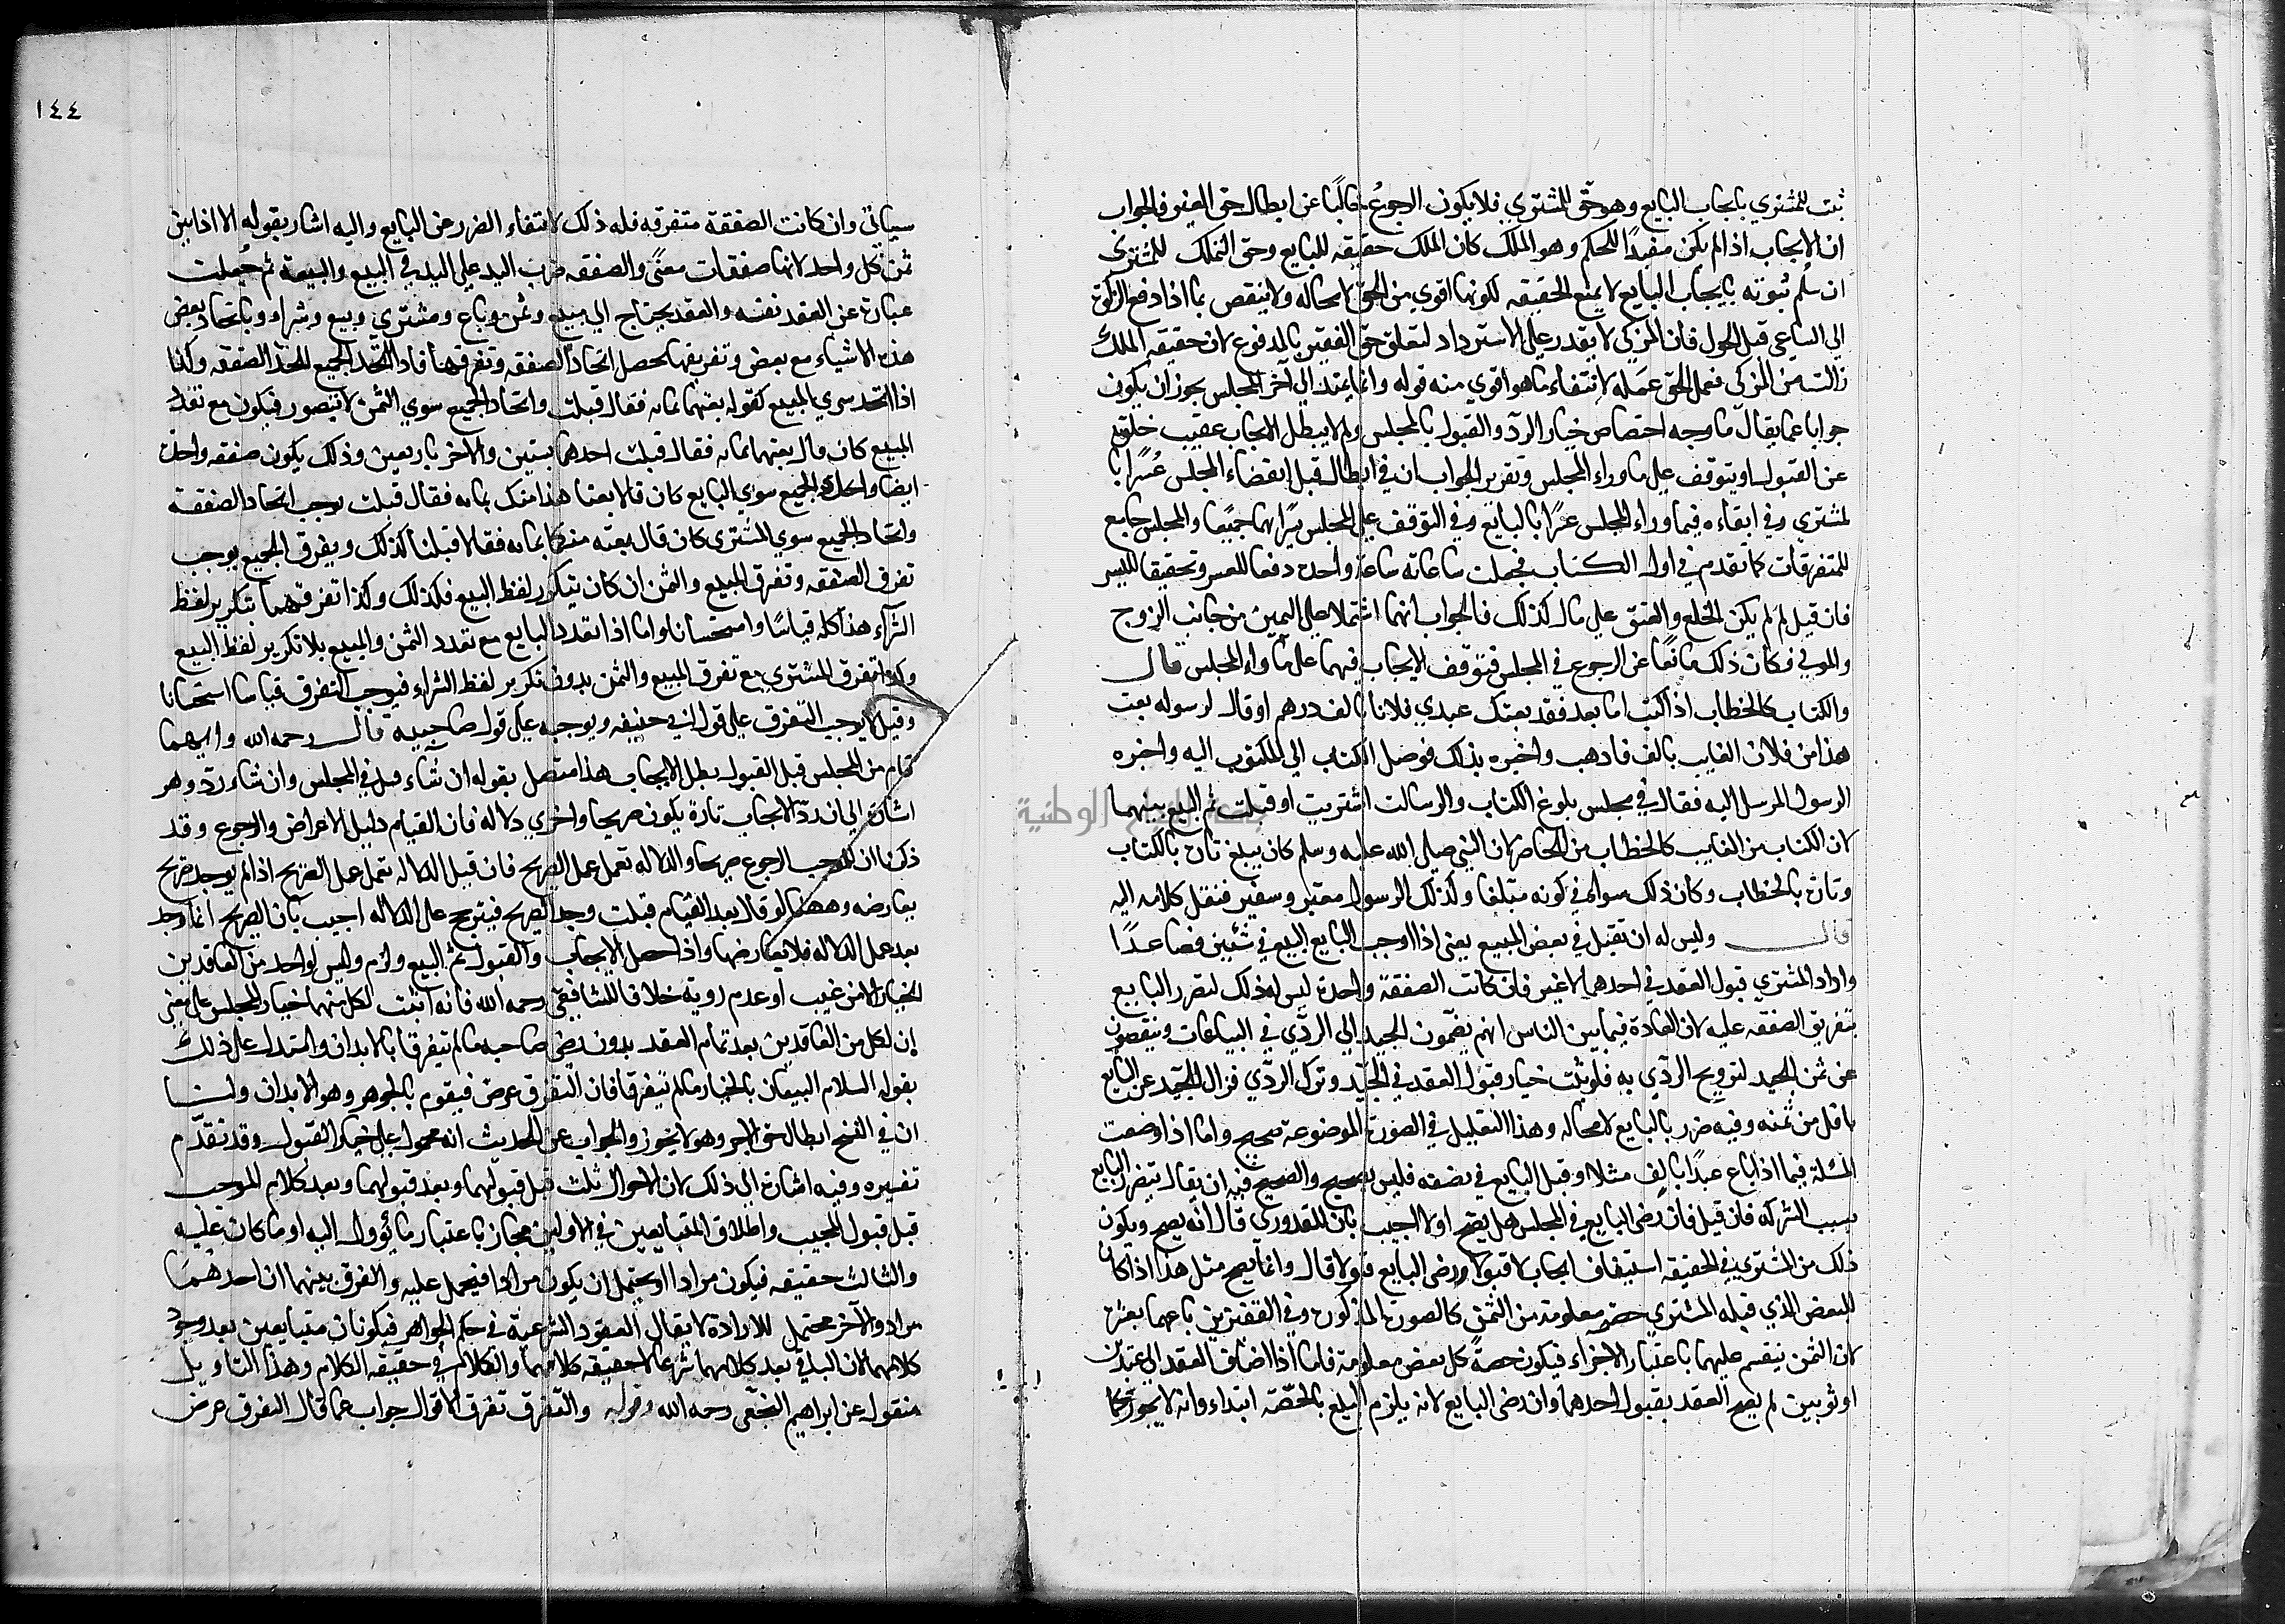 ثبت للمشتري بايجاب البايع وهو حق للمشتري فلا يكون الرجوع خاليًا عن ابطال حق الغير فالجواب
ان الايجاب اذا لم يكن مفيدًا للحكم وهو الملك كان الملك حقيقة للبايع وحق التملك للمشتري
ان سُلم ثبوته بايجاب البايع لا يمنع الحقيقه لكونها اقوي من الحق لامحاله ولا ينتقض بما اذا دفع الزكوة
الي الساعي قبل الحول فان المزكي لا يقدر علي الاسترداد لتعلق حق الفقير بالمدفوع لان حقيقه الملك
زالت من المزكي فعمل الحق عمله لانتفاء ما هو اقوي منه قوله وانما يمتد الي آخر المجلس يجوز ان يكون
جوابا عما يقال ما وجه اختصاص خيار الرد والقبول بالمجلس ولم لا يبطل الايجاب عقيب خلوه
عن القبول او يتوقف علي ما وراء المجلس وتقرير الجواب ان في ابطاله قبل انقضاء المجلس عُسرًا با
لمشتري وفي ابقاءه فيما وراء المجلس عسرًا بالبايع وفي التوقف علي المجلس يسرًا بهما جميعًا والمجلس جامع
للمتفرقات كما تقدم في اول الكتاب فجعلت ساعاته ساعة واحدة دفعا للعسر وتحقيقا لليسر
فان قيل لم لم يكن الخلع والعتق علي مال كذلك فالجواب انهما اشتملا علي اليمين من جانب الزوج
والمولي فكان ذلك مانعًا عن الرجوع في المجلس فتوقف الايجاب فيهما علي ما وراء المجلس قال
والكتاب كالخطاب اذا كتب اما بعد فقد بعتك عبدي فلانا بالف درهم او قال لرسوله بعت
هذا من فلان الغايب بالف فاذهب واخبره بذلك فوصل الكتاب الي المكتوب اليه واخبره
الرسول المرسل اليه فقال في مجلس بلوغ الكتاب والرسالت اشتريت او قبلت تم البيع بينهما
لان الكتاب من الغايب كالخطاب من الحاضر لان النبي صلي الله عليه وسلم كان يبلغ تارة بالكتاب
وتارة بالخطاب وكان ذلك سواء في كونه مبلغا وكذلك الرسول معبر وسفير فنقل كلامه اليه
قال وليس له ان يقبل في بعض المبيع يعني اذا اوجب البايع البيع في شئين فصاعدًا
واراد المشتري قبول العقد في احدهما لا غير فان كانت الصفقة واحدة ليس له ذلك لتضرر البايع
بتفريق الصفقه عليه لان العادة فيما بين الناس انهم يضمون الجيد الي الردّي في البياعات وينقصون
عن ثمن الجيد لترويج الردّي به فلو ثبت خيار قبول العقد في الجيّد وترك الردّي فزال الجيّد عن البايع
باقل من ثمنه وفيه ضرر بالبايع لامحاله وهذا التعليل في الصورة الموضوعة صحيح واما اذا وضعت
المسئلة فيما اذا باع عبدًا بالف مثلا او قبل البايع في نصفه فليس بصحيح والصحيح فيه ان يقال يتضرر البايع
بسبب الشركه فان قيل فان رضي البايع في المجلس هل يصح او لا اجيب بان القدوري قال انه يصح ويكون
ذلك من المشتري في الحقيقه استيناف ايجاب لا قبولا ورضي البايع قبولا قال وانما يصح مثل هذا اذا كان
للبعض الذي قبله المشتري حصة معلومة من الثمن كالصورة المذكورة وفي القفيزين باعهما بعشرة
لان الثمن ينقسم عليهما باعتبار الاجزاء فيكون حصة كل بعض معلومة فاما اذا اضاف العقد الي عبدين
او ثوبين لم يصح العقد بقبول احدهما وان رضي البايع لانه يلزم البيع بالحصّة ابتداء وانه لا يجوز كما
١٤٤
سياتي وان كانت الصفقة متفرقه فله ذلك لانتفاء الضرر عن البايع واليه اشار بقوله الا اذا بين
ثمن كل واحد لانها صفقات معنًي والصفقه ضرب اليد علي اليد في البيع والبيعة ثم جُعلت
عبارة عن العقد نفسه والعقد يحتاج الي مبيع وثمن وبايع ومشتري وبيع وشراء وباتحاد بعض
هذه الاشياء مع بعض وتفريقها يحصل اتحاد الصفقه وتفرقها فاذا اتحد الجميع اتحد الصفقه وكذا
اذا اتحد سوي المبيع كقوله بعتهما بمائه فقال قبلت واتحاد الجميع سوي الثمن لا يتصور فيكون مع تعدد
المبيع كان قال بعتهما بمائه فقال قبلت احدهما بستين والاخر باربعين وذلك يكون صفقه واحدة
ايضا واتحاد الجميع سوي البايع كان قالا بعنا هذا منك بمائه فقال قبلت يوجب اتحاد الصفقة
واتحاد الجميع سوي المشتري كان قال بعته منكما بمائه فقالا قبلنا كذلك وتفرق الجميع يوجب
تفرق الصفقه وتفرق المبيع والثمن ان كان بتكرر لفظ البيع فكذلك وكذا تفرقهما بتكرير لفظ
الشراء هذا كله قياسًا واستحسانا واما اذا تعدد البايع مع تعدد الثمن والمبيع بلا تكرير لفظ البيع
وكذا تفرق المشتري مع تفرق المبيع والثمن بدون تكرير لفظ الشراء فيوجب التفرق قياسا استحسانا
وقيل لا يوجب التفرق علي قول ابي حنيفه ويوجبه علي قول صاحبيه قال رحمه الله وايهما
قام من المجلس قبل القبول بطل الايجاب هذا متصل بقوله ان شاء قبل في المجلس وان شاء ردّ وهو
اشارة الي ان ردّ الايجاب تارة يكون صريحا واخري دلاله فان القيام دليل الاعراض والرجوع وقد
ذكرنا ان للموجب الرجوع صريحا والدلاله تعمل عمل الصريح فان قيل الدلاله تعمل عمل الصريح اذا لم يوجد صريح
يعارضه وههنا لو قال بعد القيام قبلت وجد الصريح فيترجح علي الدلاله اجيب بان الصريح انما وجد
بعد عمل الدلاله فلا يعارضها واذا حصل الايجاب والقبول تم البيع ولزم وليس لواحد من العاقدين
الخيار الا من عيب او عدم روية خلافا للشافعي رحمه الله فانه اثبت لكل منهما خيار المجلس علي معني
ان لكل من العاقدين بعد تمام العقد بدون رضي صاحبه ما لم يتفرقا بالابدان واستدل علي ذلك
بقوله السلام البيعان بالخيار ما لم يتفرقا فان التفرق عرض فيقوم بالجوهر وهو الابدان ولنا
ان في الفسخ ابطال حق الاخر وهو لا يجوز والجواب عن الحديث انه محمول علي خيار القبول وقد تقدّم
تفسيره وفيه اشارة الي ذلك لان الاحوال ثلث قبل قبولهما وبعد قبولهما وبعد كلام الموجب
قبل قبول المجيب واطلاق المتبايعين في الاولين مجاز باعتبار ما يؤول اليه او ما كان عليه
والثالث حقيقه فيكون مرادا او يحتمل ان يكون مرادا فيحمل عليه والفرق بينهما ان احدهما
مراد والآخر محتمل للارادة لا يقال العقود الشرعية في حكم الجواهر فيكونان متبايعين بعد وجود
كلامهما لان الباقي بعد كلامهما شرعا لا حقيقه كلامهما والكلام في حقيقة الكلام وهذا التاويل
منقول عن ابراهيم النخعي رحمه الله وقوله والتفرق تفرق الاقوال جواب عما قال التفرق عرض
جامعة النجاح الوطنية